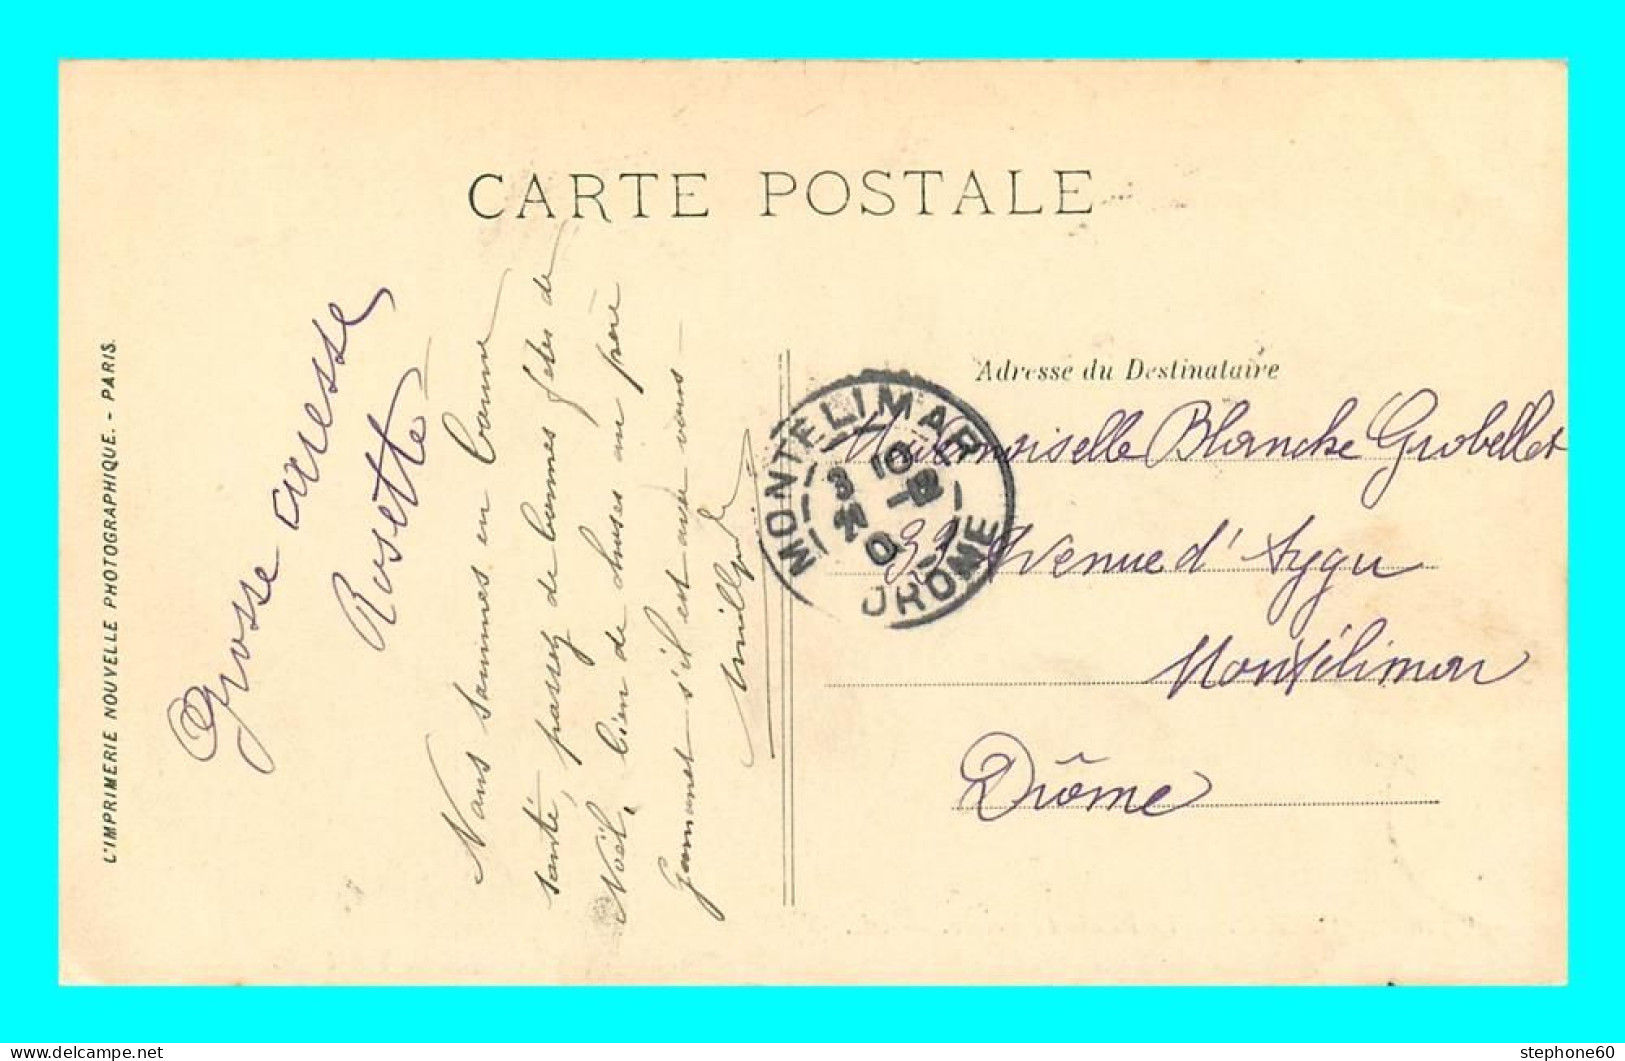 CARTE POSTALE
L'IMPRIMERIE NOUVELLE PHOTOGRAPHIQUE. - PARIS.
Grosse caresse
Rosette
Nous sommes en bonne
santé, passez de bonnes fêtes de
Noël, bien de choses au père
s'il est avec vous
Adresse du Destinataire
Mademoiselle Blanche Grobellet
Avenue d'Aygu
Montélimar
Drôme
MONTELIMAR
DROME
stephone60